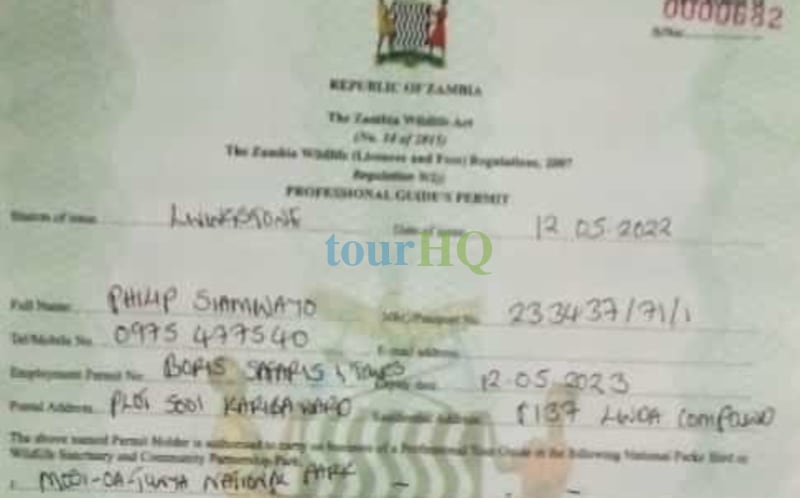 0000682
REPUBLIC OF ZAMBIA
The Zambia Wildlife Act
(No. 14 of 2015)
The Zambia Wildlife (Licences and Fees) Regulations, 2007
PROFESSIONAL GUIDE'S PERMIT
Station of issue LIVINGSTONE Date of issue 12.05.2022
tourHQ
Full Name PHILIP SIAMWAYO NRC/Passport No. 233437/71/1
Tel/Mobile No. 0975 477540 E-mail address
Employment Permit No. BORIS SAFARIS & TOURS Expiry date 12.05.2023
Postal Address PLOT 5001 KARIBA WARD Residential Address 137 COMPOUND
The above named Permit Holder is authorised to carry on business of a Professional Tour Guide in the following National Parks Bird or
Wildlife Sanctuary and Community Partnership Park:
MOSI-OA-TUNYA NATIONAL PARK